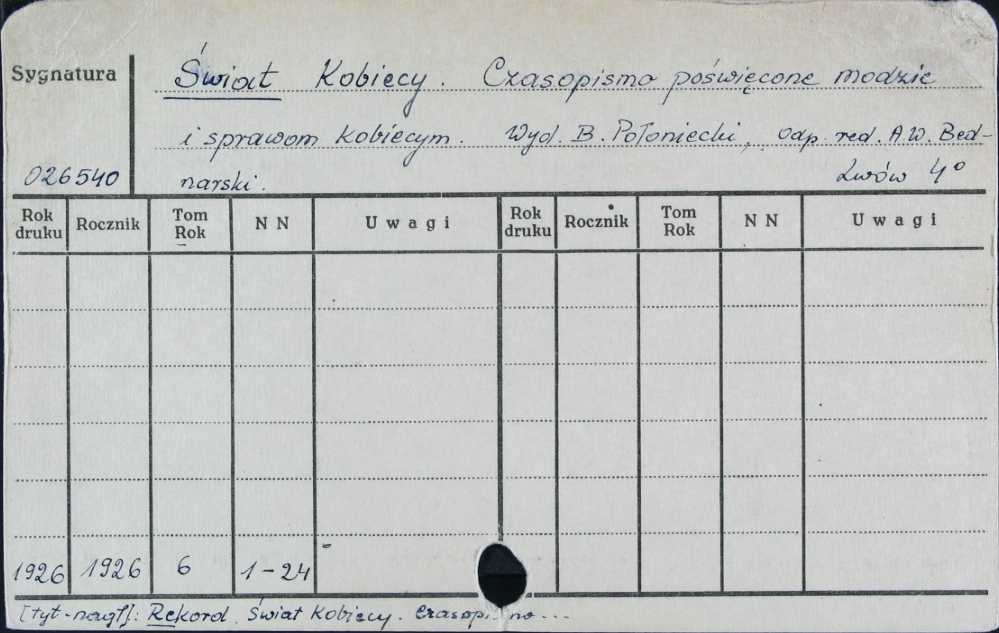 Sygnatura
Świat Kobiecy. Czasopismo poświęcone modzie
i sprawom kobiecym. Wyd. B. Połoniecki, odp. red. A.W. Bed-
026540 narski. Lwów 4°
Rok druku Rocznik Tom Rok NN Uwagi Rok druku Rocznik Tom Rok NN Uwagi
1926 1926 6 1-24
[tyt-nagł]: Rekord. Świat Kobiecy. Czasopismo...